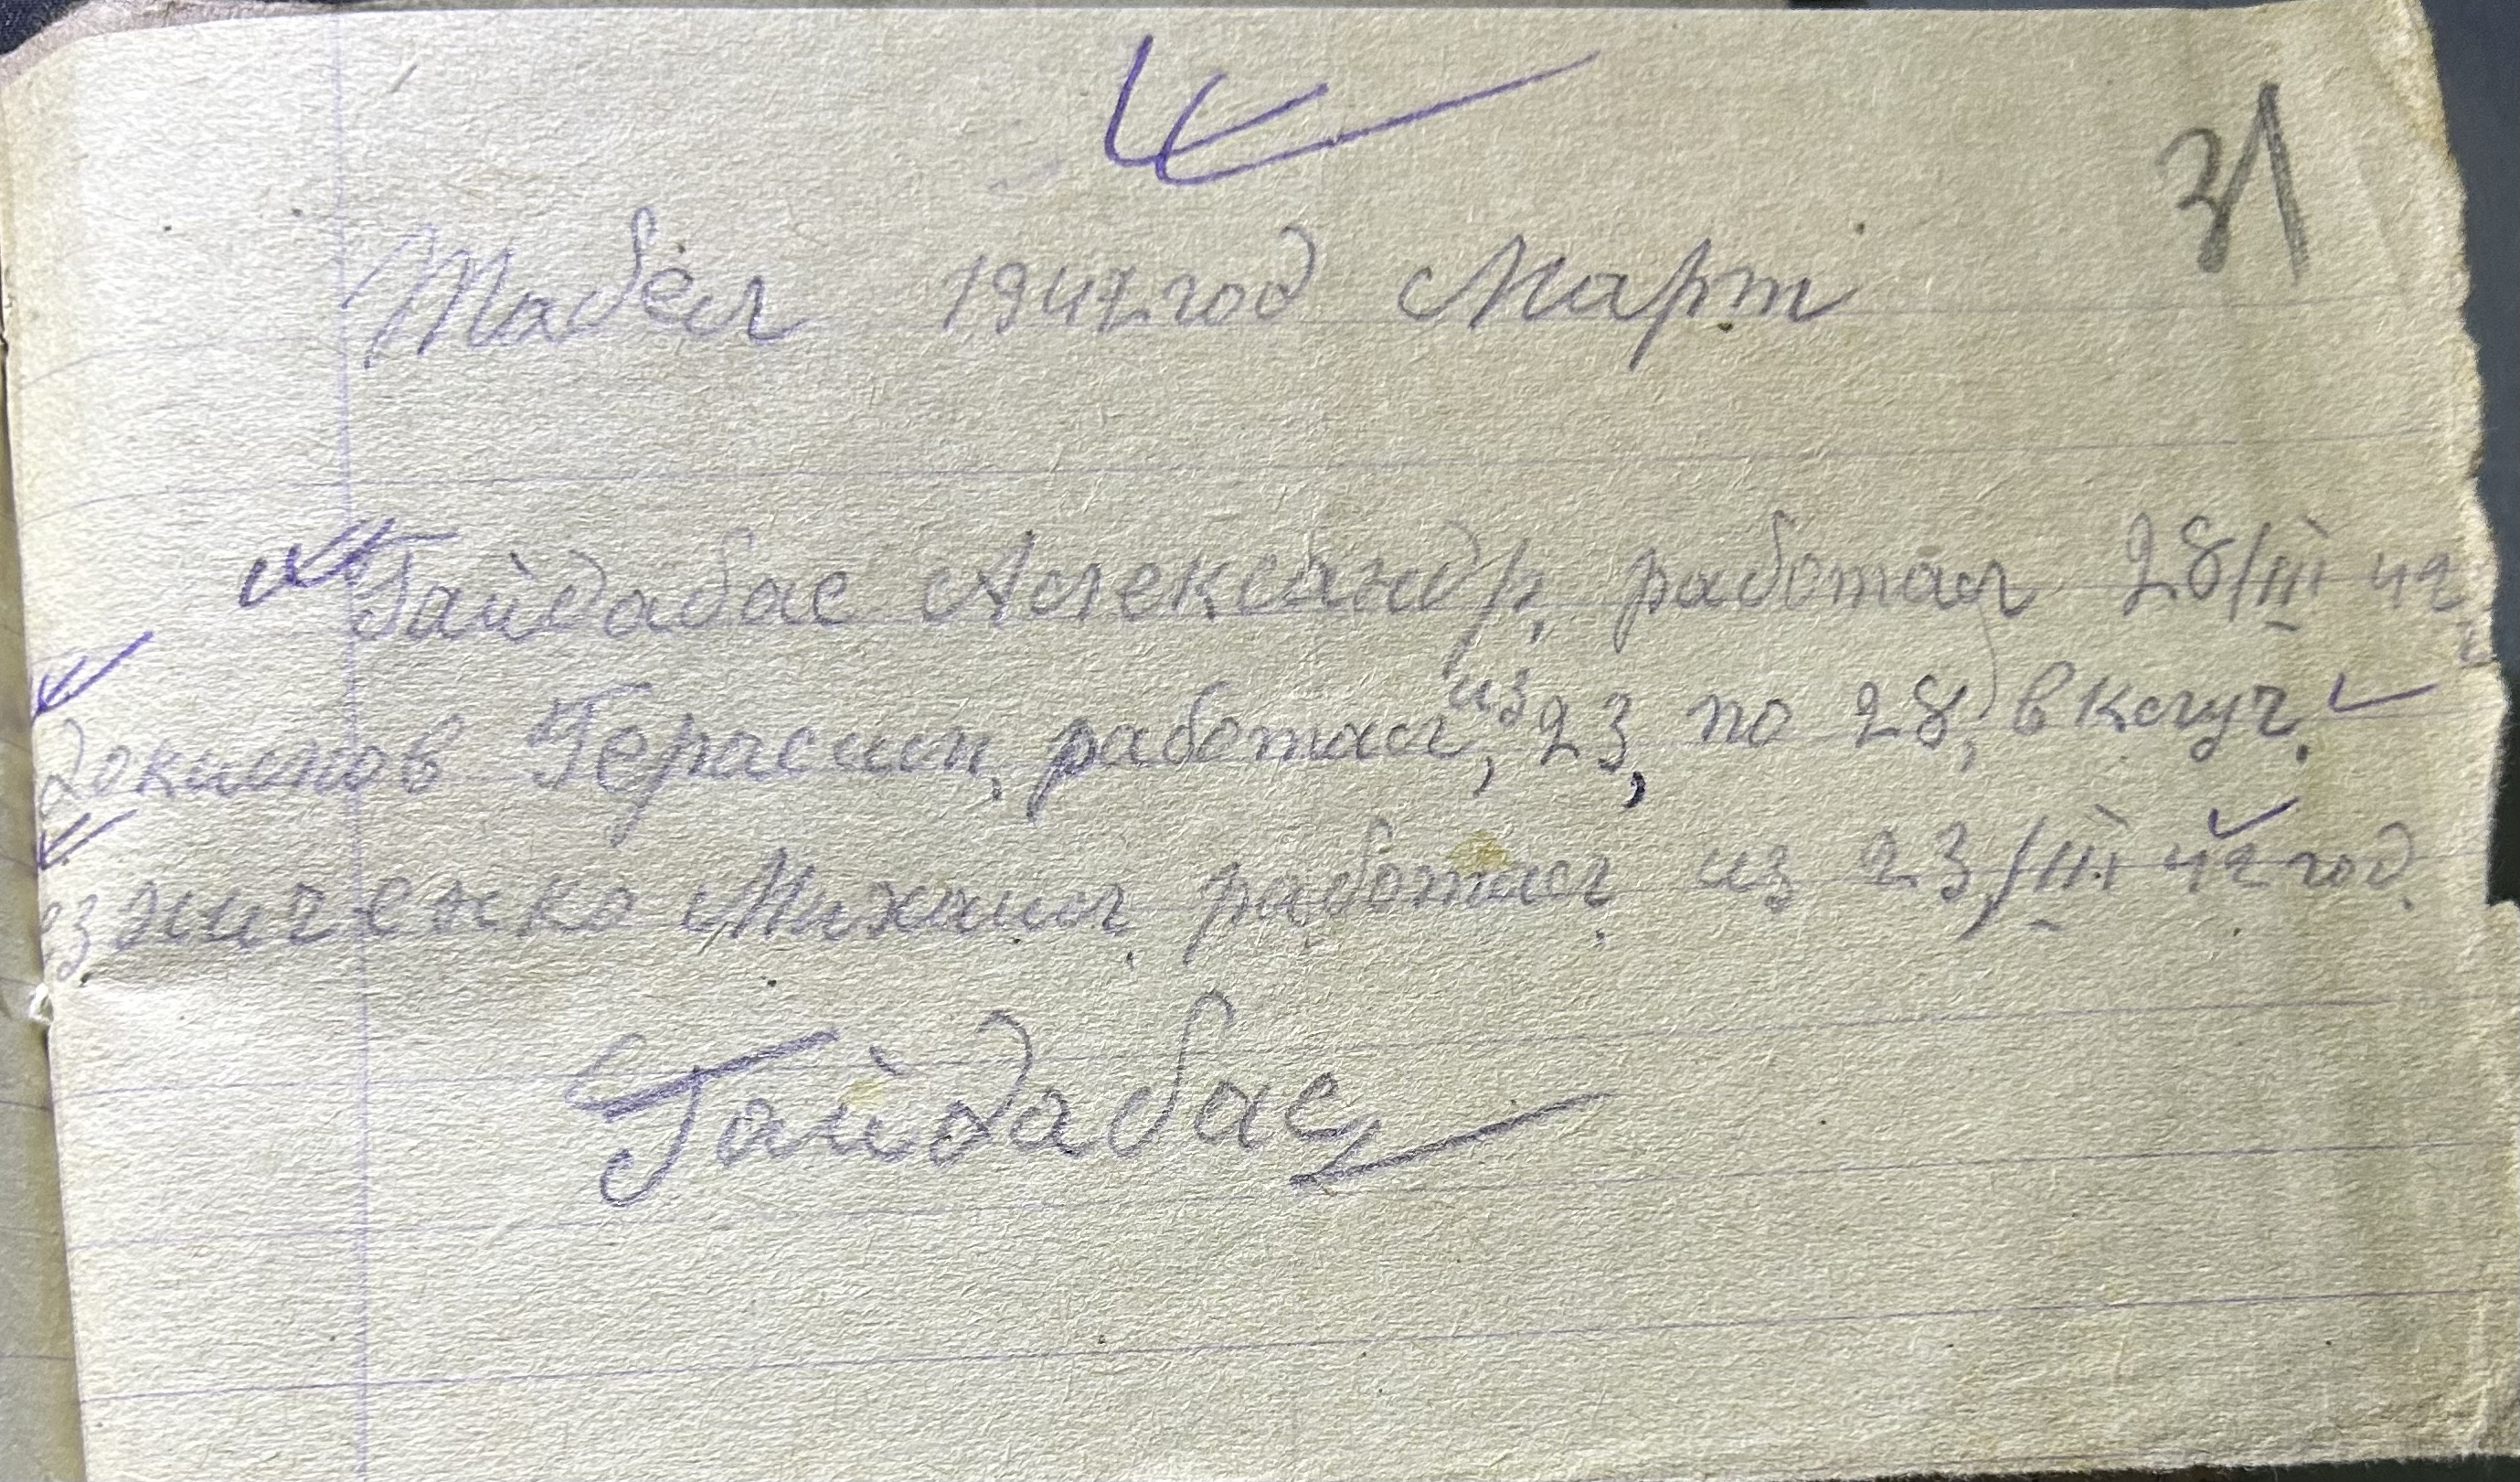 31
Табел 1942 год Март
Гайдабас Александр, работал 28/III 42
Герасим, работал, из 23, по 28, включ.
Михаил, работал, из 23/III 42 год.
Гайдабас